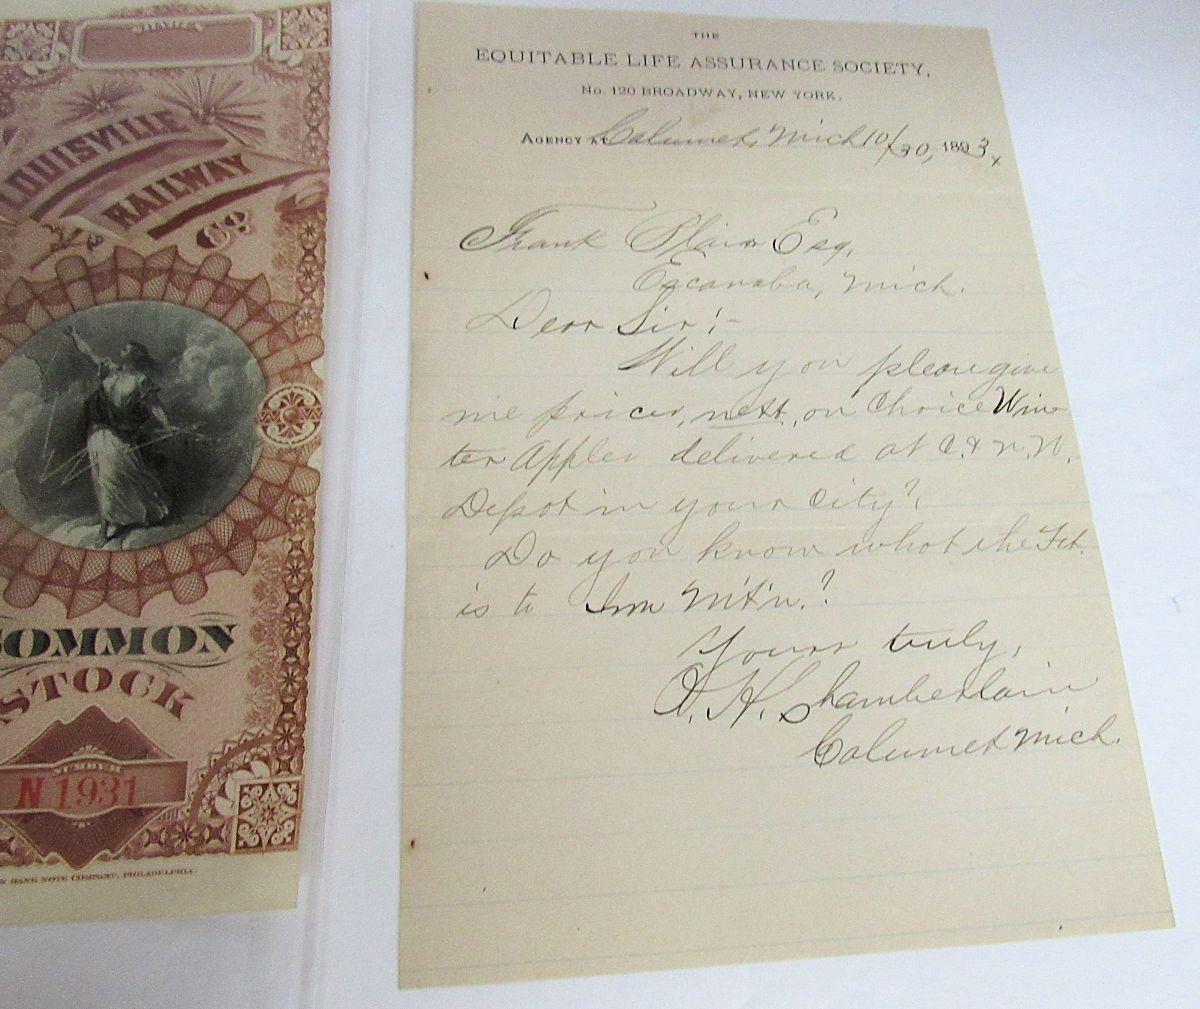 LOUISVILLE
RAILWAY
Co
COMMON
STOCK
NUMBER
N 1931
BANK NOTE COMPANY, PHILADELPHIA.
THE
EQUITABLE LIFE ASSURANCE SOCIETY,
No. 120 BROADWAY, NEW YORK.
AGENCY AT Calumet, Mich 10/30, 1893
Frank Esq,
Escanaba, Mich.
Dear Sir!-
Will you please give
me prices, nett, on Choice Win
ter Apples delivered at C. & N. W.
Depot in your City?
Do you know what the Frt.
is to Iron Mt'n.?
Yours truly,
H. Chamberlain
Calumet Mich.